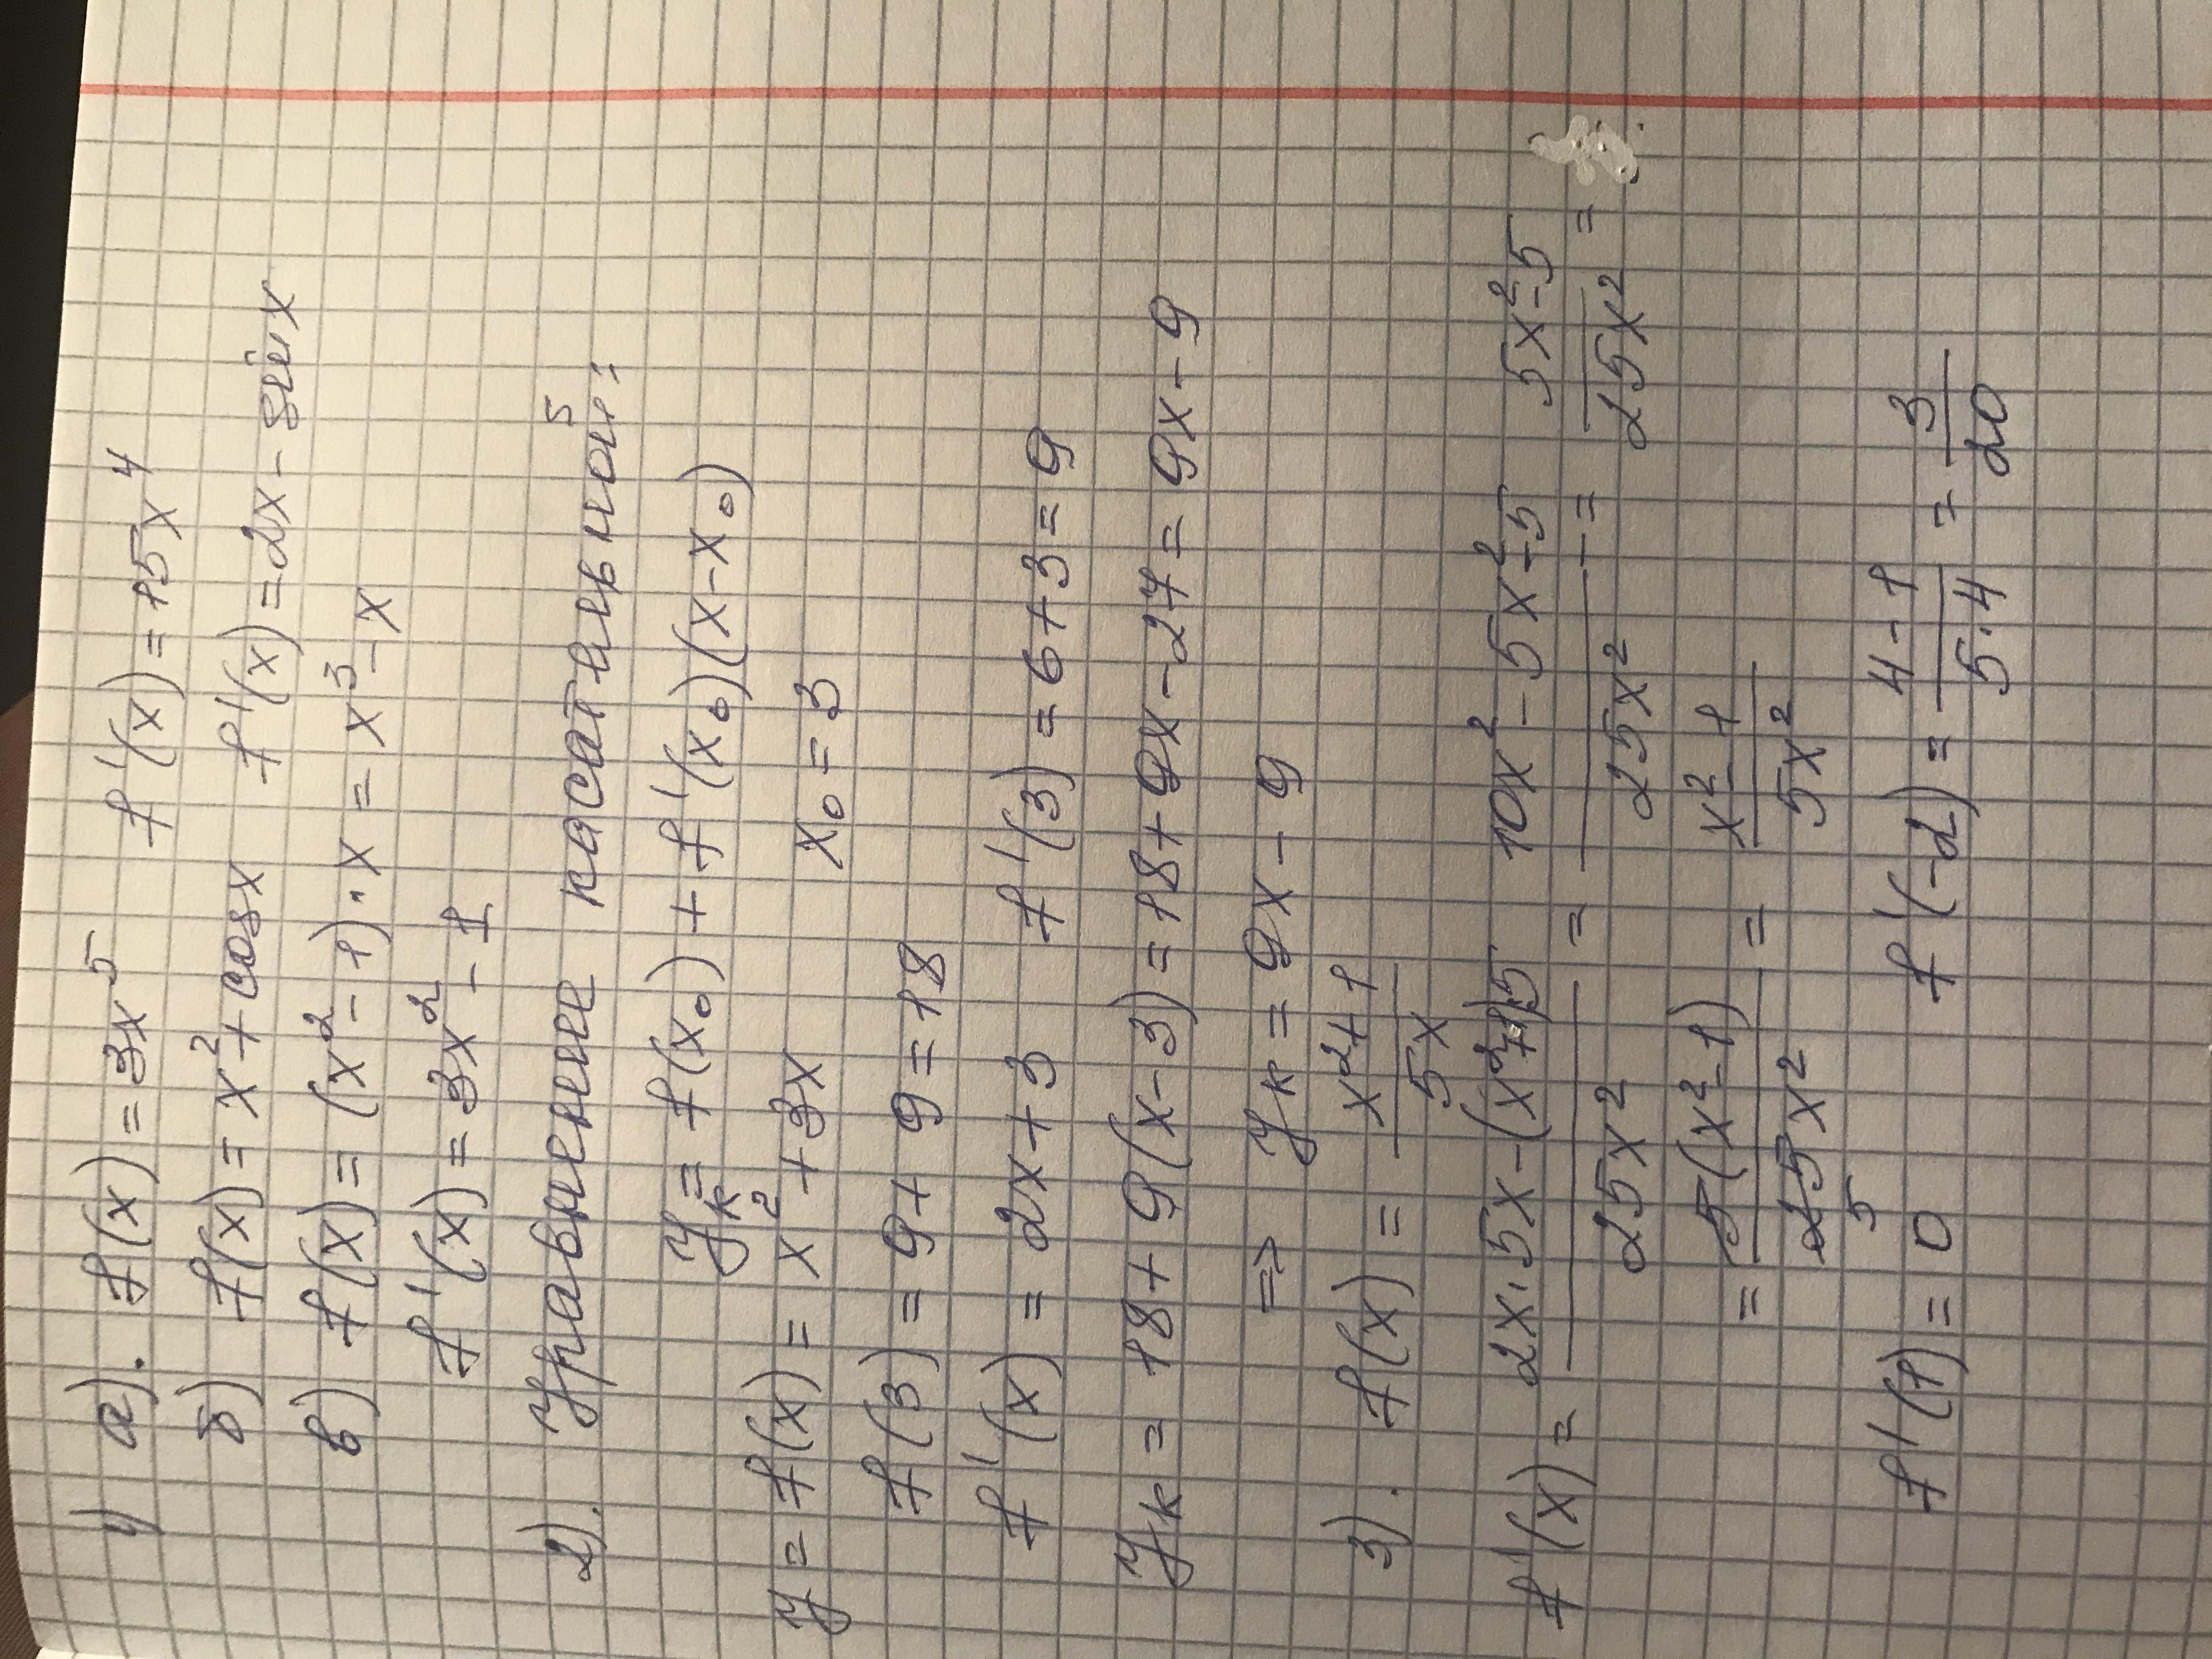 1) а). f(x) = 3x⁵   f'(x) = 15x⁴
б) f(x) = x² + cosx   f'(x) = 2x - sinx
в) f(x) = (x² - 1)·x = x³ - x
f'(x) = 3x² - 1
2). Уравнение касательной:
yк = f(x₀) + f'(x₀)(x - x₀)
y = f(x) = x² + 3x   x₀ = 3
f(3) = 9 + 9 = 18
f'(x) = 2x + 3   f'(3) = 6 + 3 = 9
yк = 18 + 9(x - 3) = 18 + 9x - 27 = 9x - 9
=> yк = 9x - 9
3). f(x) = (x² + 1)/(5x)
f'(x) = (2x·5x - (x² + 1)·5)/(25x²) = (10x² - 5x² - 5)/(25x²) = (5x² - 5)/(25x²) =
= (5(x² - 1))/(25x²) = (x² - 1)/(5x²)
5
f'(1) = 0   f'(-2) = (4 - 1)/(5·4) = 3/20